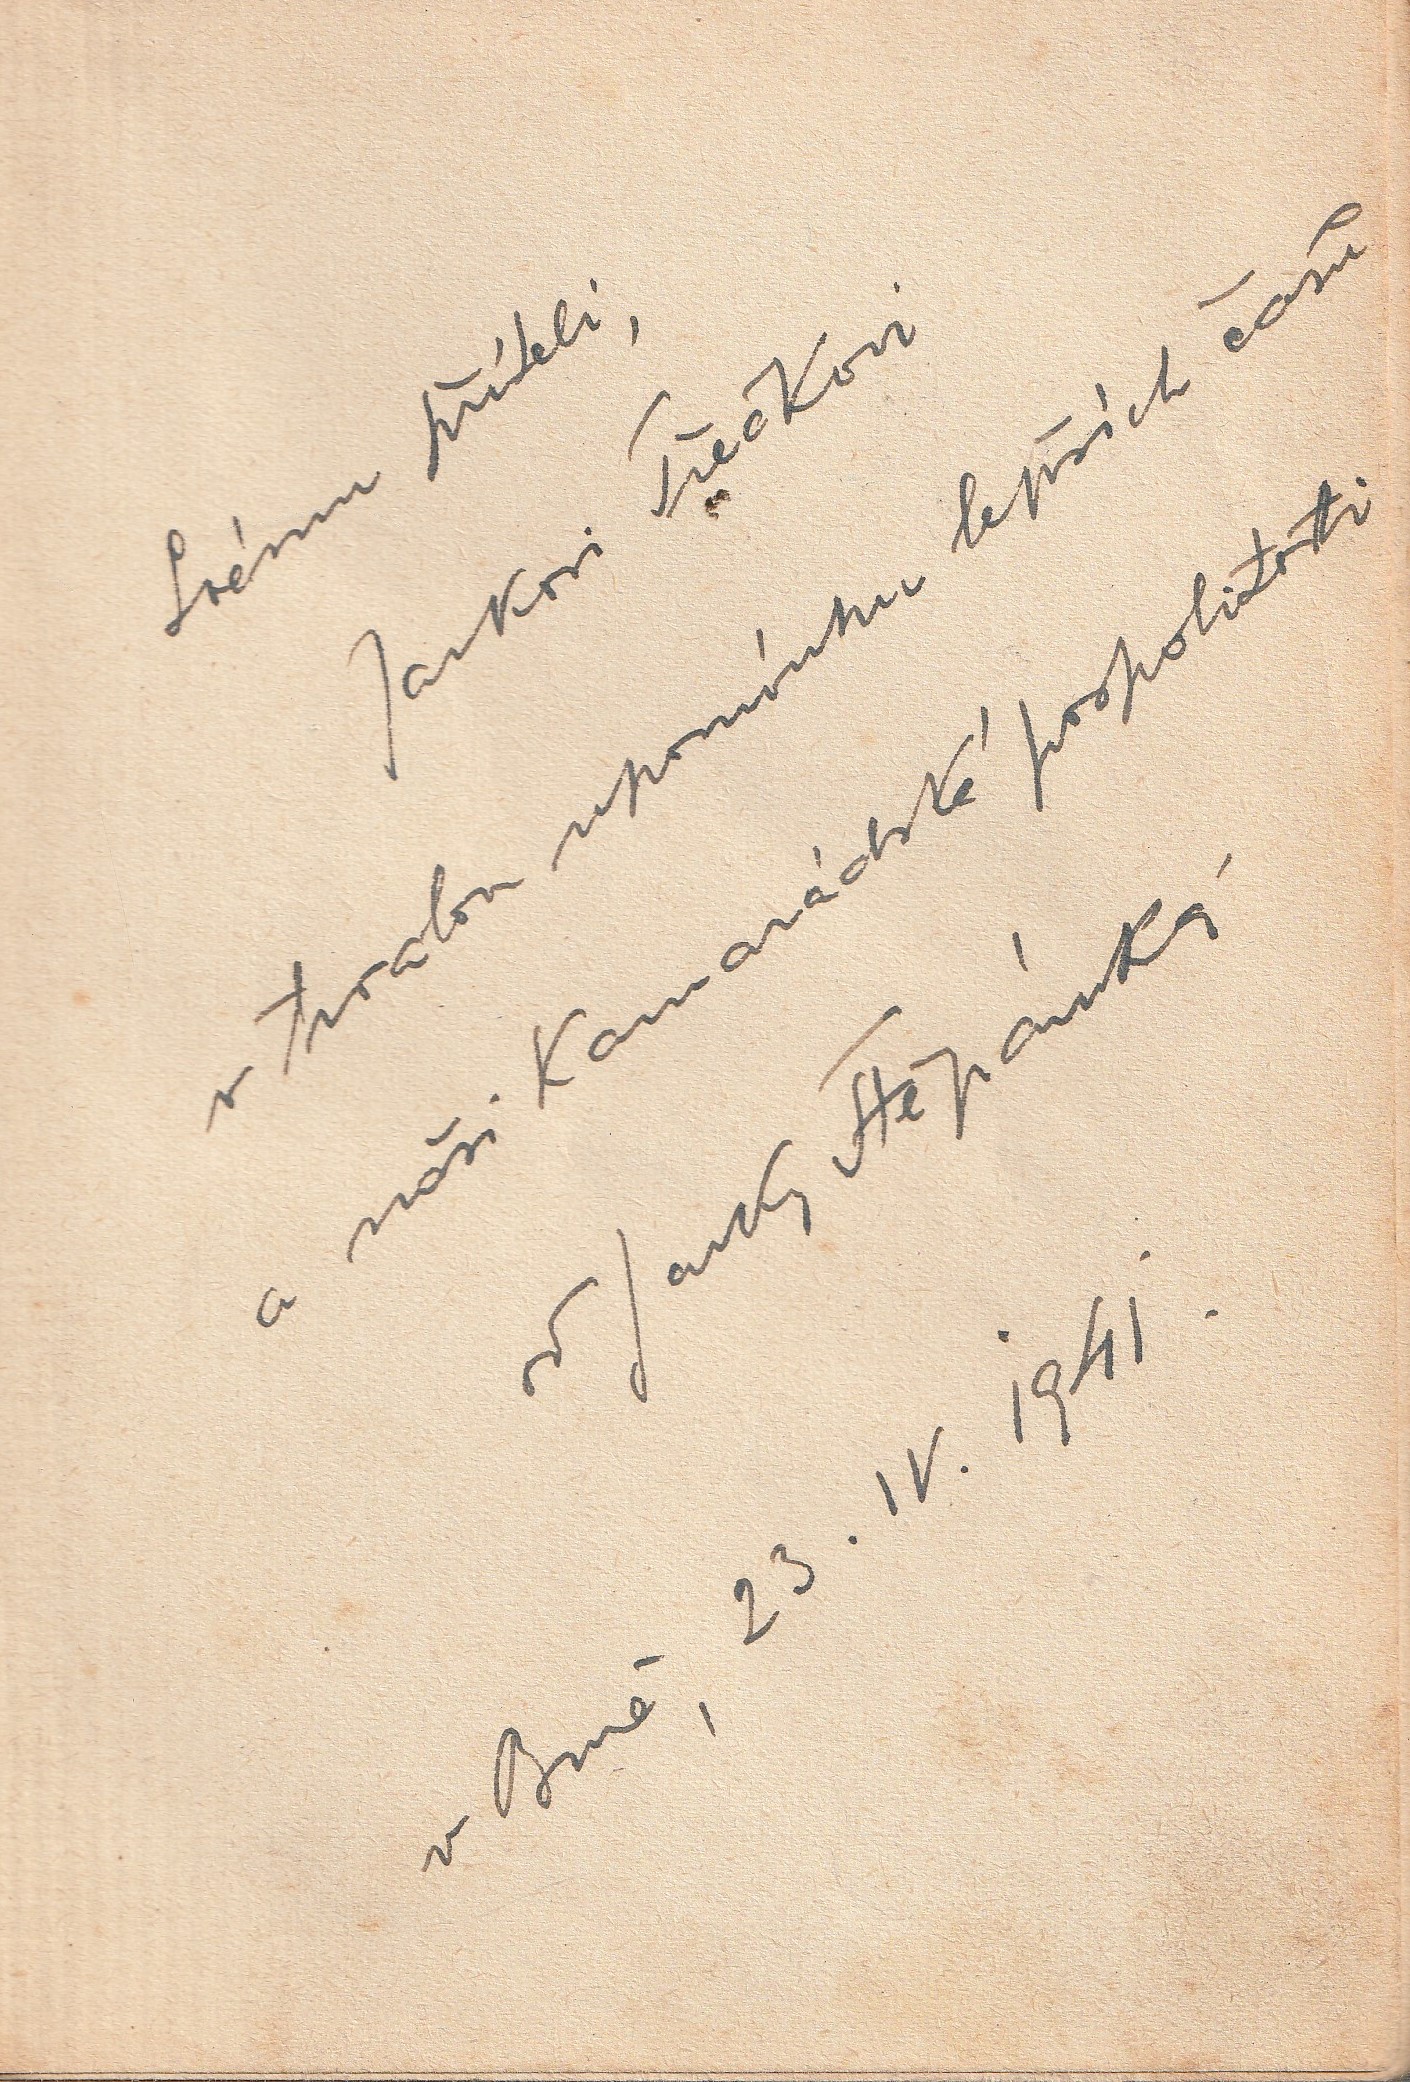 Svému příteli,
Jankovi Třečkovi
v trvalou upomínku lepších časů
a naší kamarádské pospolitosti
od Janky Štěpánka
v Brně, 23. IV. 1941.